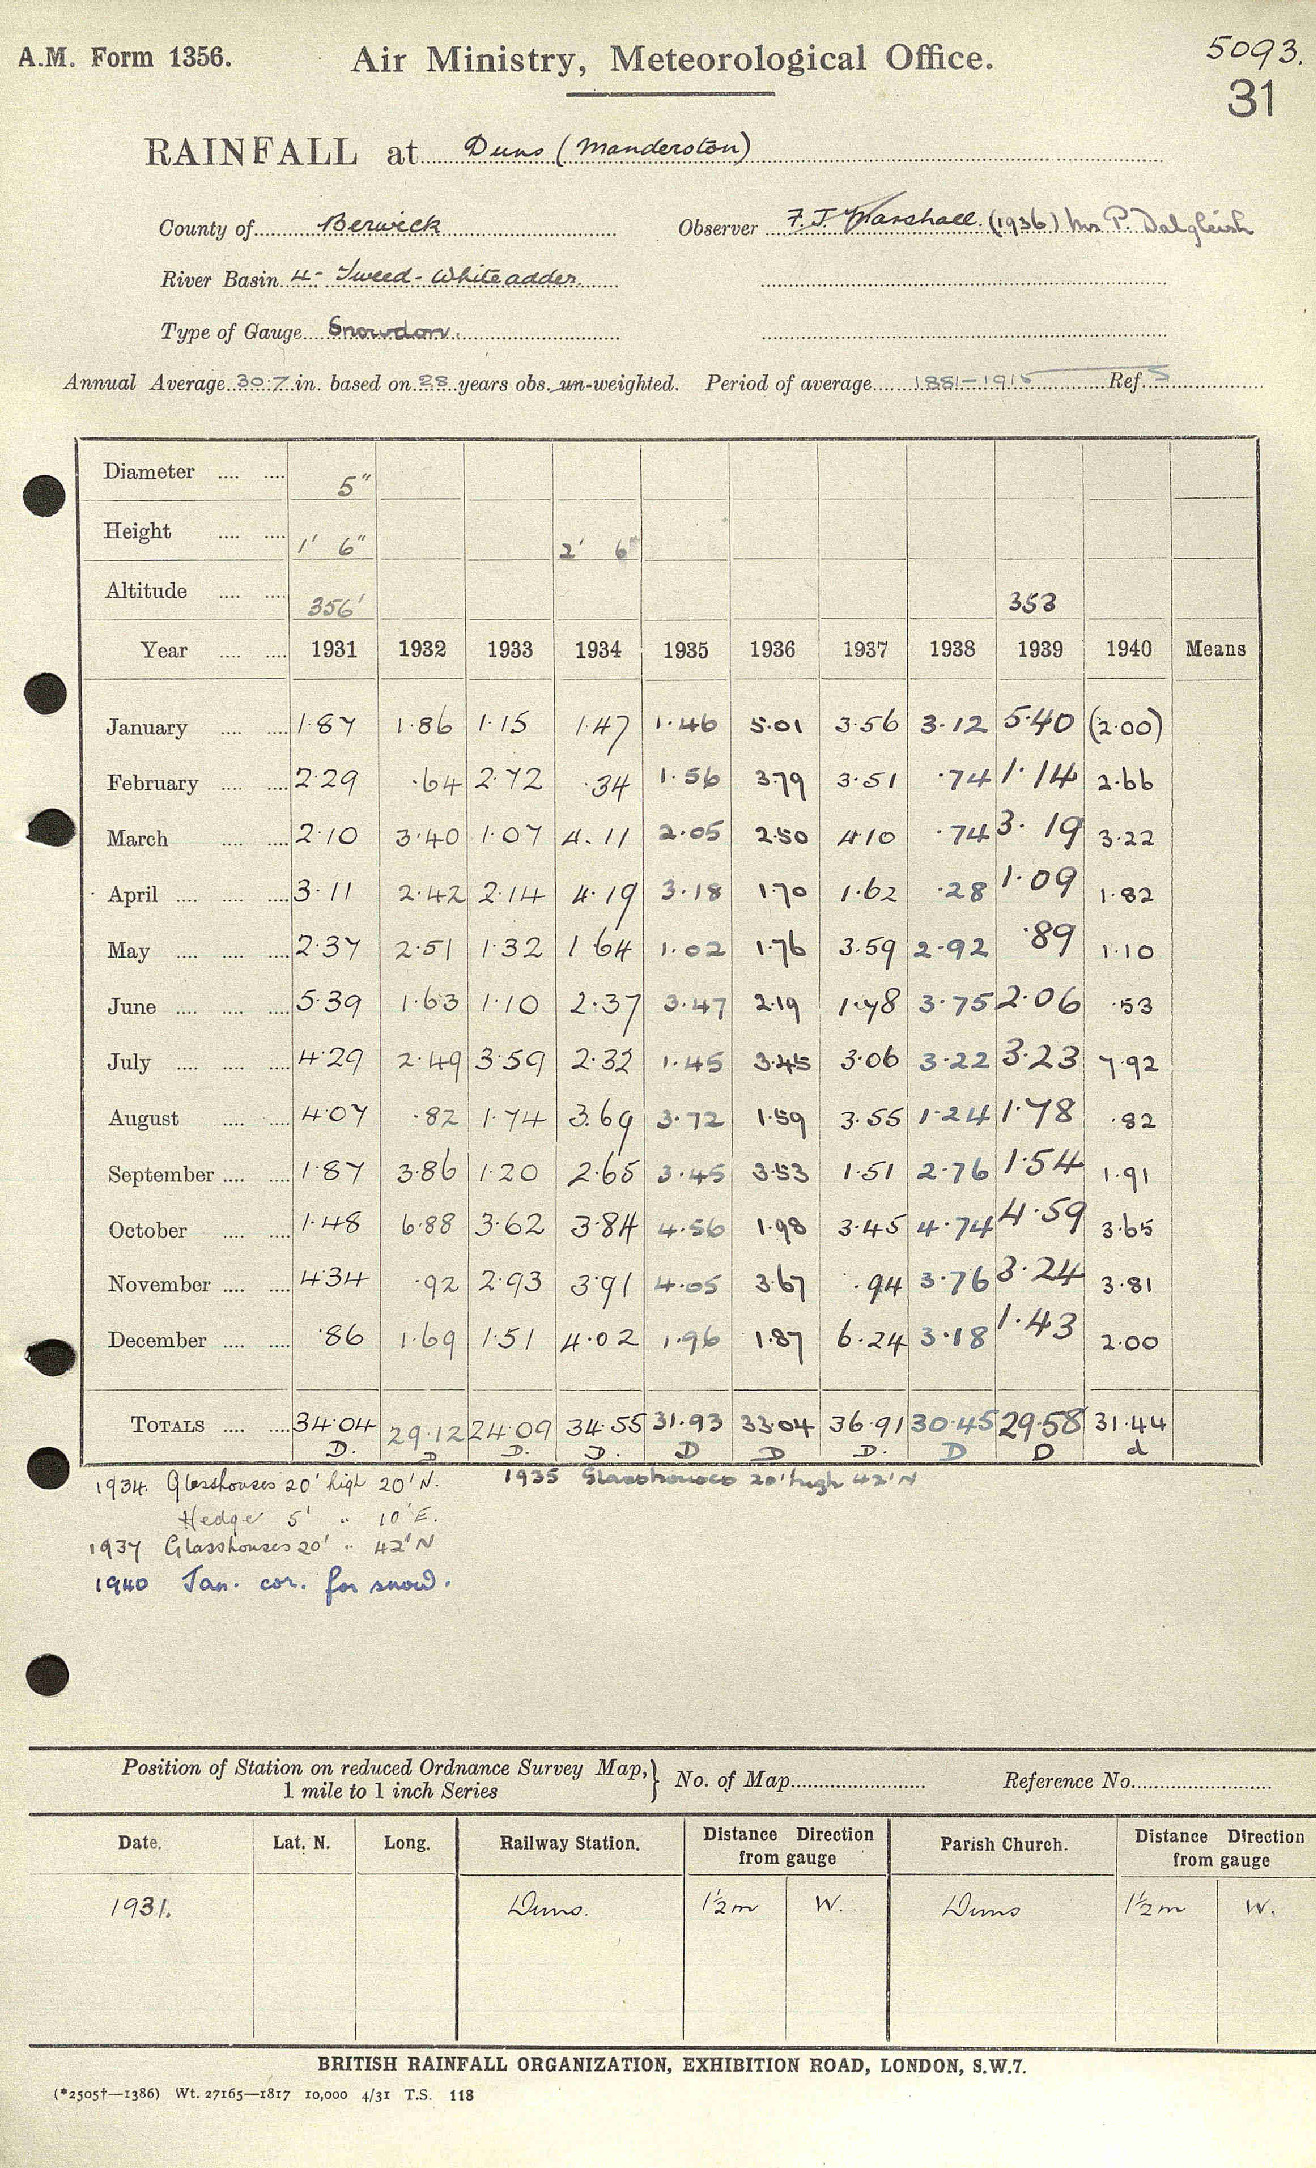 A.M. Form 1356. Air Ministry, Meteorological Office. 5093.
31
RAINFALL at Duns (Manderston)
County of Berwick Observer F. J. Marshall. (1936) Mrs P. Dalgleish
River Basin 4 - Tweed - Whiteadder.
Type of Gauge Snowdon.
Annual Average 30.7 in. based on 28 years obs. un-weighted. Period of average 1881-1915 Ref. S
Diameter 5"
Height 1' 6" 2' 6"
Altitude 356' 353
Year 1931 1932 1933 1934 1935 1936 1937 1938 1939 1940 Means
January 1.87 1.86 1.15 1.47 1.46 5.01 3.56 3.12 5.40 (2.00)
February 2.29 .64 2.72 .34 1.56 3.79 3.51 .74 1.14 2.66
March 2.10 3.40 1.07 4.11 2.05 2.50 4.10 .74 3.19 3.22
April 3.11 2.42 2.14 4.19 3.18 1.70 1.62 .28 1.09 1.82
May 2.37 2.51 1.32 1.64 1.02 1.76 3.59 2.92 .89 1.10
June 5.39 1.63 1.10 2.37 3.47 2.19 1.78 3.75 2.06 .53
July 4.29 2.49 3.59 2.32 1.45 3.45 3.06 3.22 3.23 7.92
August 4.07 .82 1.74 3.69 3.72 1.59 3.55 1.24 1.78 .82
September 1.87 3.86 1.20 2.65 3.45 3.53 1.51 2.76 1.54 1.91
October 1.48 6.88 3.62 3.84 4.56 1.98 3.45 4.74 4.59 3.65
November 4.34 .92 2.93 3.91 4.05 3.67 .94 3.76 3.24 3.81
December .86 1.69 1.51 4.02 1.96 1.87 6.24 3.18 1.43 2.00
TOTALS 34.04 29.12 24.09 34.55 31.93 33.04 36.91 30.45 29.58 31.44
D. D D. D. D D D. D D d
1934. Glasshouses 20' high 20' N. 1935 Glasshouses 20' high 42' N
Hedge 5' " 10' E.
1937 Glasshouses 20' " 42' N
1940 Jan. cor. for snow.
Position of Station on reduced Ordnance Survey Map, 1 mile to 1 inch Series } No. of Map Reference No.
Date. Lat. N. Long. Railway Station. Distance Direction from gauge Parish Church. Distance Direction from gauge
1931. Duns. 1½m W. Duns 1½m W.
BRITISH RAINFALL ORGANIZATION, EXHIBITION ROAD, LONDON, S.W.7.
(*2505†—1386) Wt. 27165—1817 10,000 4/31 T.S. 118